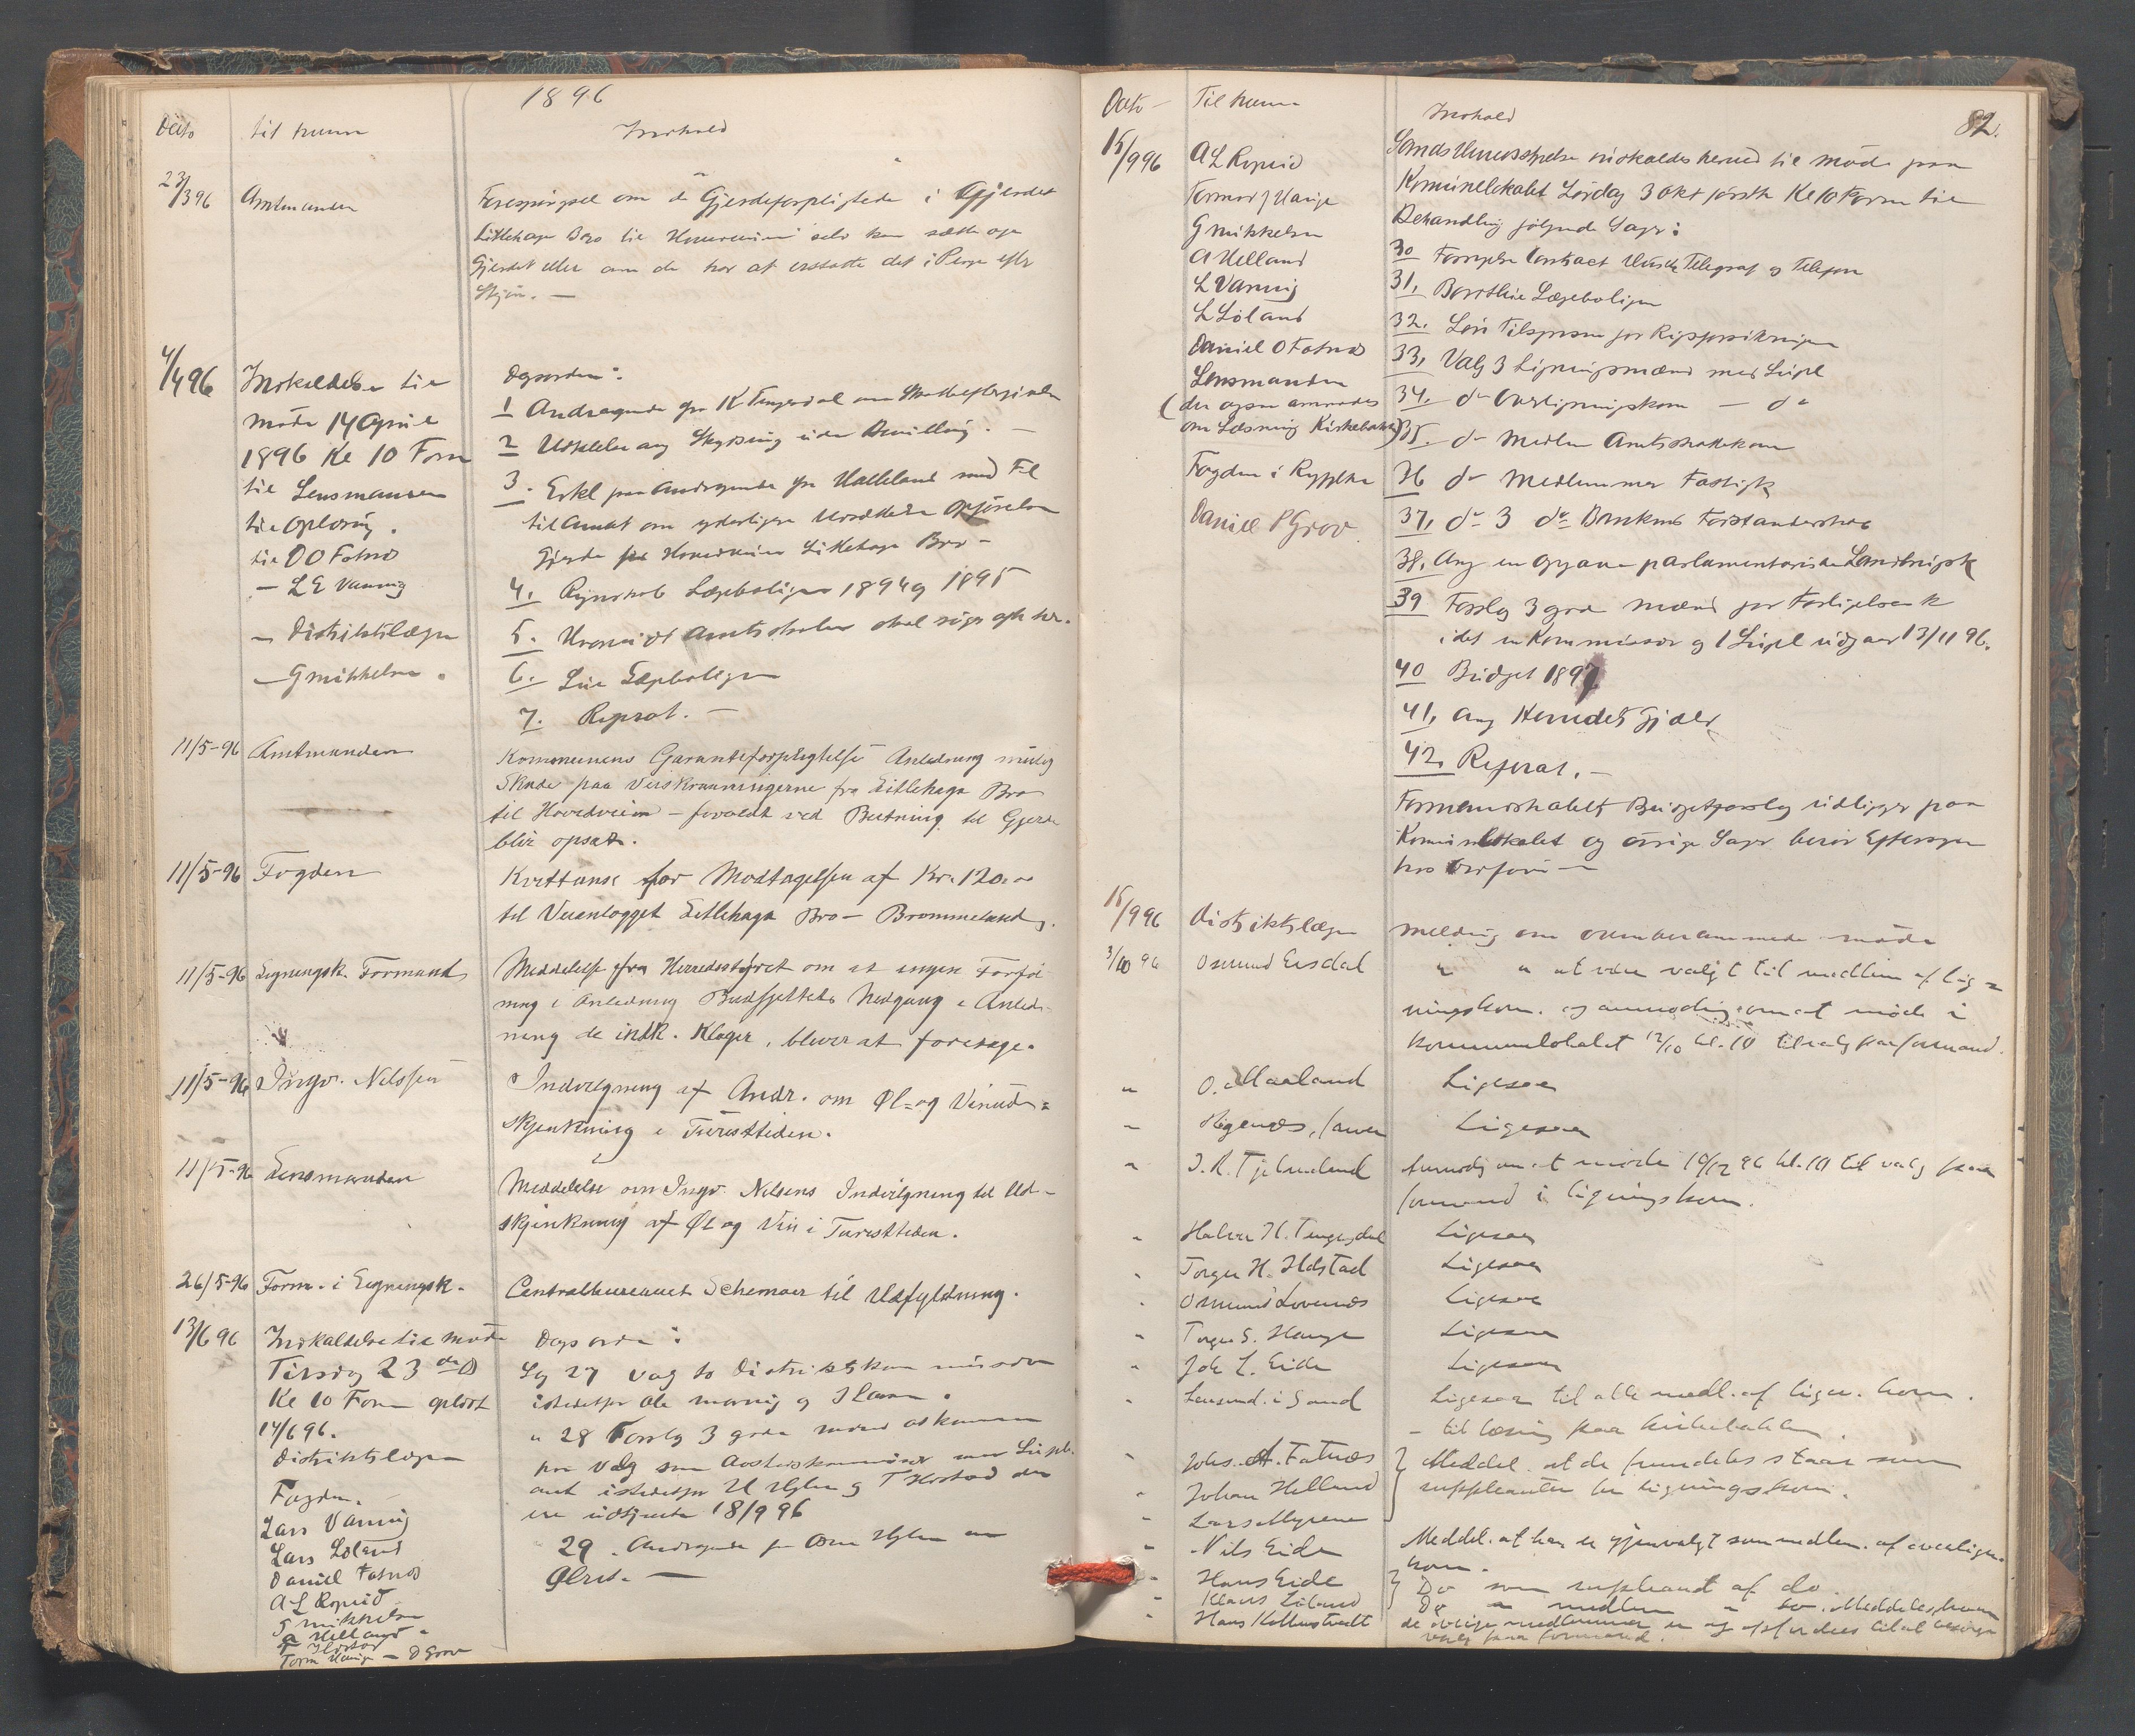 1896
Dato til hvem Indhold
23/3 96 Amtmanden
Forespørgsel om de Gjerdeforpligtede i Gjerdet
Littlehaga Bro til Hovedveien selv kan sætte op
Gjerdet eller om de har at erstatte det i Penge efter
Skjøn. —
4/4 96 Indkaldelse til
møde 14 April
1896 Kl 10 Form
til Lensmanden
til Oplæsning.
til D O Fatnes
— L E Vanvig
— Distriktslægen
— G Mikkelsen.
Dagsorden:
1 Andragende fra K Tengesdal om Skatteeftergivelse
2 Udstedelse ang Skydsning uden Bevilling. —
3. Erkl paa Andragende fra Helleland med Fl
til Amtet om yderligere Udsættelse Opførelse
Gjerde fra Hovedveien Littlehaga Bro —
4. Regnskab Lægeboligen 1894 og 1895
5. Hvorvidt Amtsskolen skal søges
6. Leie Lægeboligen
7. Referat. —
11/5-96 Amtmanden
Kommunens Garantiforpligtelse Anledning mulig
Skade paa Veiskraaningerne fra Littlehaga Bro
til Hovedveien — forvoldt ved Beitning til Gjerde
blir opsat.
11/5-96 Fogden
Kvittanse for Modtagelsen af Kr. 120.00
til Veianlægget Littlehaga Bro — Brommeland.
11/5-96 Ligningsk. Formand
Meddelelse fra Herredsstyret om at ingen Forføi
ning i Anledning Budgjettets Nedgang i Anled-
ning de indk. Klager, bliver at foretage.
11/5-96 Ingv. Nilssen
Indvilgning af Andr. om Øl- og Vinud-
skjenkning i Turisttiden.
11/5-96 Lensmanden
Meddelelse om Ingv. Nilsens Indvilgning til Ud-
skjenkning af Øl og Vin i Turisttiden.
26/5-96 Form. i Ligningsk.
Centralbureauet Schemaer til Udfyldning.
13/6 96 Indkaldelse til møde
Tirsdag 23de ds
Kl 10 Form oplæst
14/6 96.
Distriktslægen
Fogden.
Lars Vanvig
Lars Løland
Daniel Fatnes
A L Ropeid
G Mikkelsen
A Helland
T Hostad
Torm Hauge — D Grov
Dagsorden:
Sag 27 Valg to Distriktskommissærer
istedetfor Ole
" 28 Forslag 3 gode mænd
for Valg som med Suppl.
ant istedetfor H Hylen og T Hostad der
ere udtjente 18/9 96
29. Andragende fra Hylen om
Ølret. —
82.
Dato — Til hvem Indhold
15/9 96 A L Ropeid
Tormod J Hauge
G Mikkelsen
A Helland
L Vanvig
L Løland
Daniel O Fatnes
Lensmanden
(der ogsaa anmodes
om Læsning Kirkebakken)
Fogden i Ryfylke
Daniel P Grov.
Sands Herredsstyrelse indkaldes herved til Møde paa
Kommunelokalet Lørdag 3 Okt førstk Kl 10 Form til
Behandling følgende Sager:
30 Fornyelse Contract Telegraf og Telefon
31. Bortleie Lægeboligen
32. Tilsynsm for
33. Valg 3 Ligningsmænd med Suppl
34. do Overligningskom — do
35. do Medlem Amtsskattekom
36 do Medlemmer Fattigk
37. do 3 do Bankens Forstanderskab
38. Ang en parlamentariske Landbrugsk
39 Forslag 3 gode Mænd
idet en Kommissær og 1 Suppl udgaar 13/11 96.
40 Budget 1897
41. Ang Herredets Gjæld
42. Referat. —
Formandskabets Budgetforslag udligger paa
Kommunelokalet og øvrige Sager beror Eftersyn
hos Ordføren —
15/9 96 Distriktslægen Melding om ovenberammede møde
3/10 96 Osmund Ersdal " " at være valgt til medlem af lig-
ningskom. og anmodning om at møde i
kommunelokalet 12/10 kl. 10 til valg paa formand.
" O. Maaland Ligesaa
" Ligesaa
" J. R. Tjelmeland Anmodn om at møde kl. 10 til valg paa
formand i ligningskom.
" Halvor H. Tengesdal Ligesaa
" Torger H. Hostad Ligesaa
" Osmund Lovenæs Ligesaa
" Torger S. Hauge Ligesaa
" Joh L. Eide Ligesaa
" Lensmd. i Sand Ligesaa til alle medl. af lign. kom.
— til læsning paa kirkebakken.
" Johs. A. Fatnæs Meddel. at de fremdeles staar som
" Johan Helland suppleanter for ligningskom.
" Lars Myrene
" Nils Eide Meddel. at han er gjenvalgt som medlem af overlign.
kom.
" Hans Eide Do som suppleant af do.
" Klaus Løland Do " medlem " do. Meddeles hvem
" Hans Kolbenstvedt de øvrige medlemmer er og opfordres til at besørge
valg paa formand.